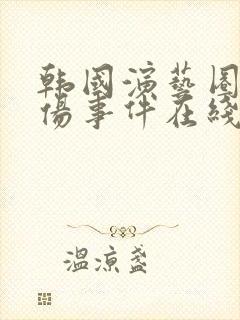 韩国演艺圈
伤事件在线
温凉盏